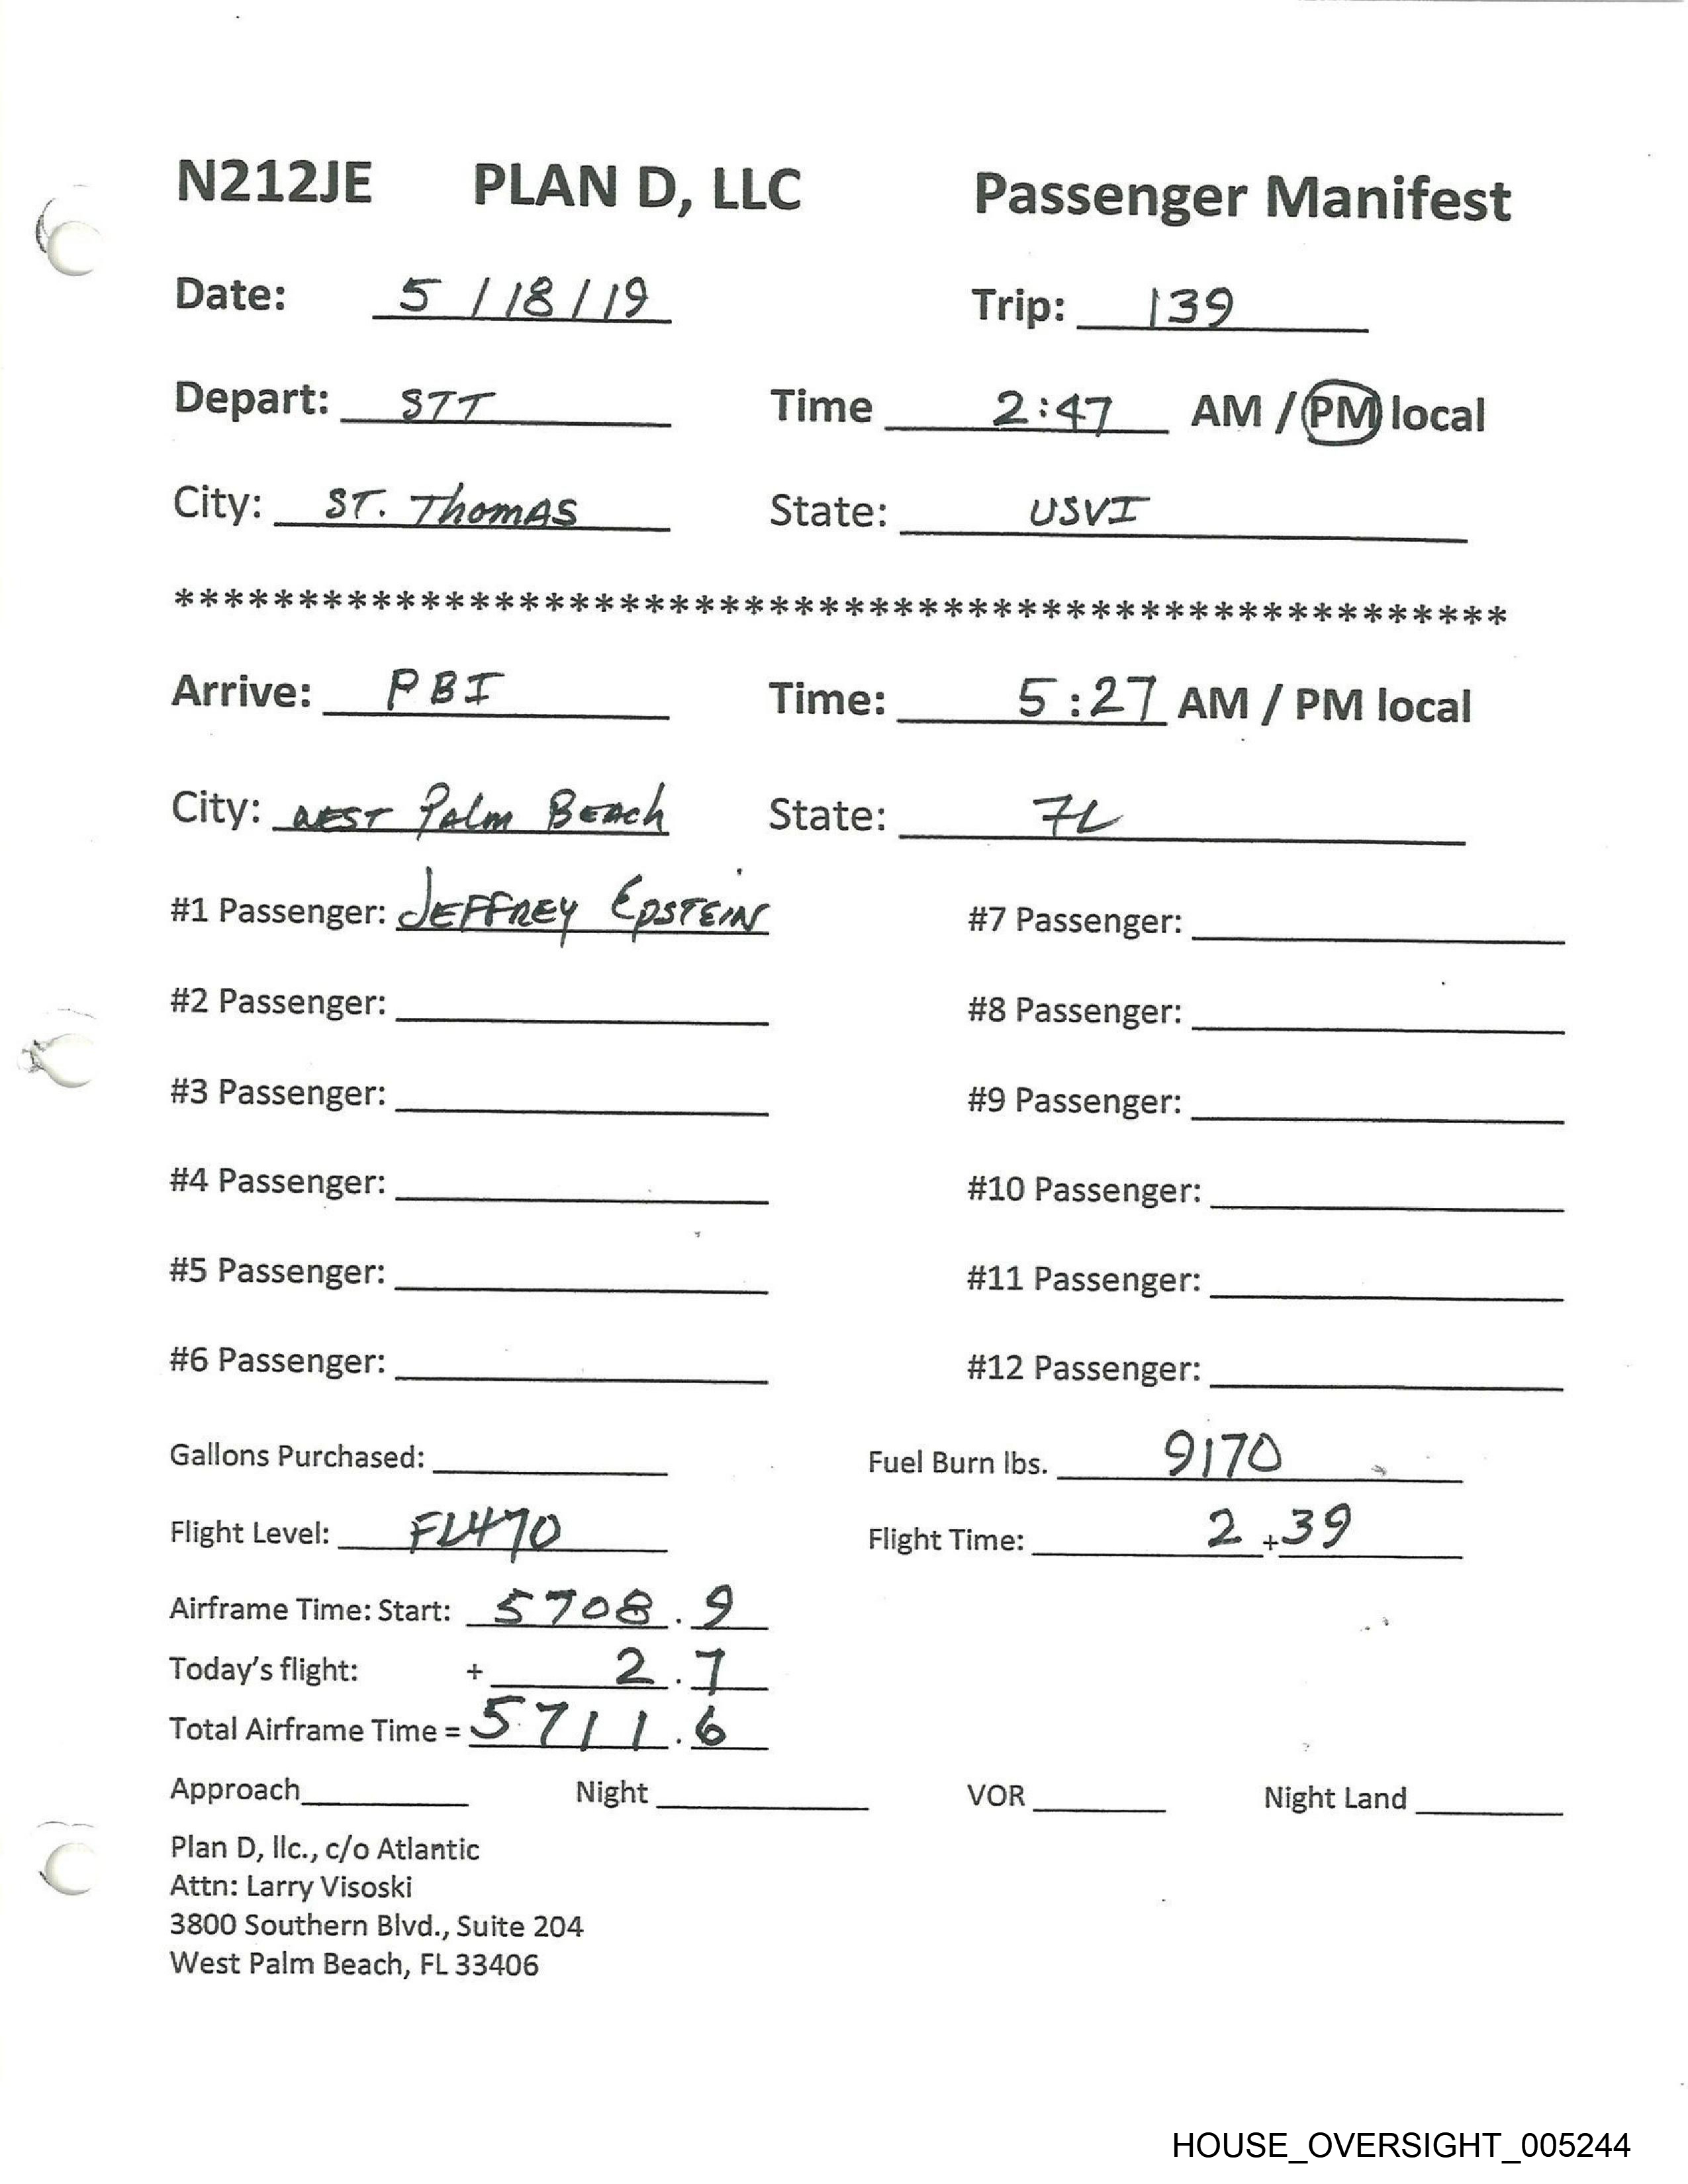 N212JE PLAN D, LLC Passenger Manifest
Date: 5 / 18 / 19 Trip: 139
Depart: STT Time 2:47 AM / PM local
City: ST. ThomAS State: USVI
******************************************************
Arrive: PBI Time: 5:27 AM / PM local
City: WEST PAlm BEAch State: FL
#1 Passenger: JEFFREY EpSTEIN #7 Passenger:
#2 Passenger: #8 Passenger:
#3 Passenger: #9 Passenger:
#4 Passenger: #10 Passenger:
#5 Passenger: #11 Passenger:
#6 Passenger: #12 Passenger:
Gallons Purchased: Fuel Burn lbs. 9170
Flight Level: FL470 Flight Time: 2 + 39
Airframe Time: Start: 5708.9
Today's flight: + 2.7
Total Airframe Time = 5711.6
Approach Night VOR Night Land
Plan D, llc., c/o Atlantic
Attn: Larry Visoski
3800 Southern Blvd., Suite 204
West Palm Beach, FL 33406
HOUSE_OVERSIGHT_005244